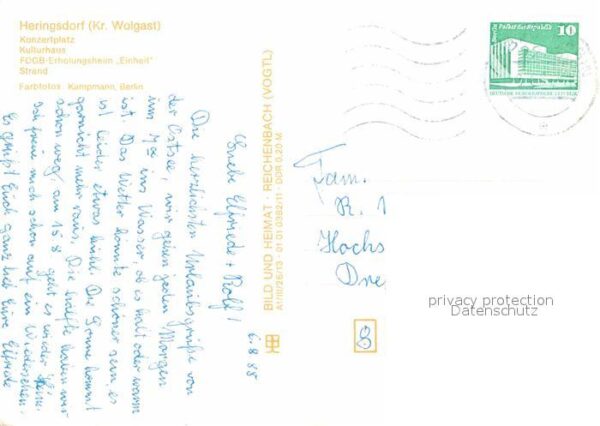 Heringsdorf (Kr. Wolgast)
Konzertplatz
Kulturhaus
FDGB-Erholungsheim „Einheit"
Strand
Farbfotos Kampmann, Berlin
BILD UND HEIMAT · REICHENBACH (VOGTL)
A1/III/26/13 01 01 0382/11 DDR 0,20 M
Berlin Palast der Republik
10
DEUTSCHE DEMOKRATISCHE REPUBLIK
6.8.85
Liebe Elfriede + Rolf!
Die herzlichsten Urlaubsgrüße von
der Ostsee, wir gehen jeden Morgen
um 7 ins Wasser, ob es kalt oder warm
ist. Das Wetter könnte schöner sein, es
ist leider etwas kühl. Die Sonne kommt
garnicht mehr raus. Die Hälfte haben wir
schon weg, am 15.8 geht es wieder heim.
Ich freue mich schon auf ein Wiedersehen.
Es grüßt Euch ganz lieb Eure Elfriede
Fam.
R. 1
Hochs
Dre
8
privacy protection
Datenschutz